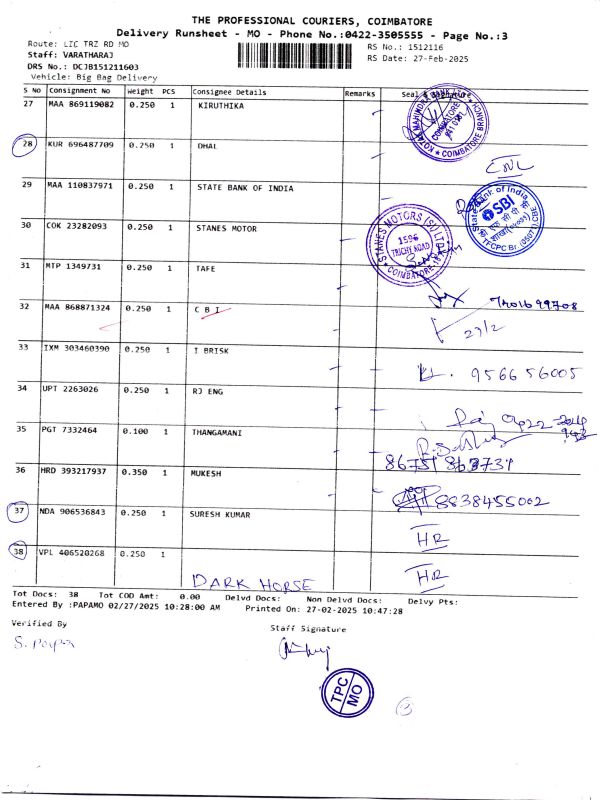 THE PROFESSIONAL COURIERS, COIMBATORE
Delivery Runsheet - MO - Phone No.:0422-3505555 - Page No.:3
Route: LIC TRZ RD MO
RS No.: 1512116
Staff: VARATHARAJ
RS Date: 27-Feb-2025
DRS No.: DCJB151211603
Vehicle: Big Bag Delivery
S No Consignment No Weight PCS Consignee Details Remarks Seal
27 MAA 869119082 0.250 1 KIRUTHIKA
KOTAK MAHINDRA BANK LTD COIMBATORE COIMBATORE BRANCH
28 KUR 696487709 0.250 1 DHAL
CNL
29 MAA 110837971 0.250 1 STATE BANK OF INDIA
State Bank of India SBI TFCPC Br.
30 COK 23282093 0.250 1 STANES MOTOR
STANES MOTORS (SI) LTD 1596 TRICHY ROAD COIMBATORE
31 MTP 1349731 0.250 1 TAFE
32 MAA 868871324 0.250 1 C B I
27/2
33 IXM 303460390 0.250 1 T BRISK
9566 56005
34 UPT 2263026 0.250 1 RJ ENG
0422
35 PGT 7332464 0.100 1 THANGAMANI
36 HRD 393217937 0.350 1 MUKESH
8838455002
37 NDA 906536843 0.250 1 SURESH KUMAR
HR
38 VPL 406520268 0.250 1
DARK HORSE
HR
Tot Docs: 38 Tot COD Amt: 0.00 Delvd Docs: Non Delvd Docs: Delvy Pts:
Entered By :PAPAMO 02/27/2025 10:28:00 AM Printed On: 27-02-2025 10:47:28
Verified By
Staff Signature
TPC
MO
3